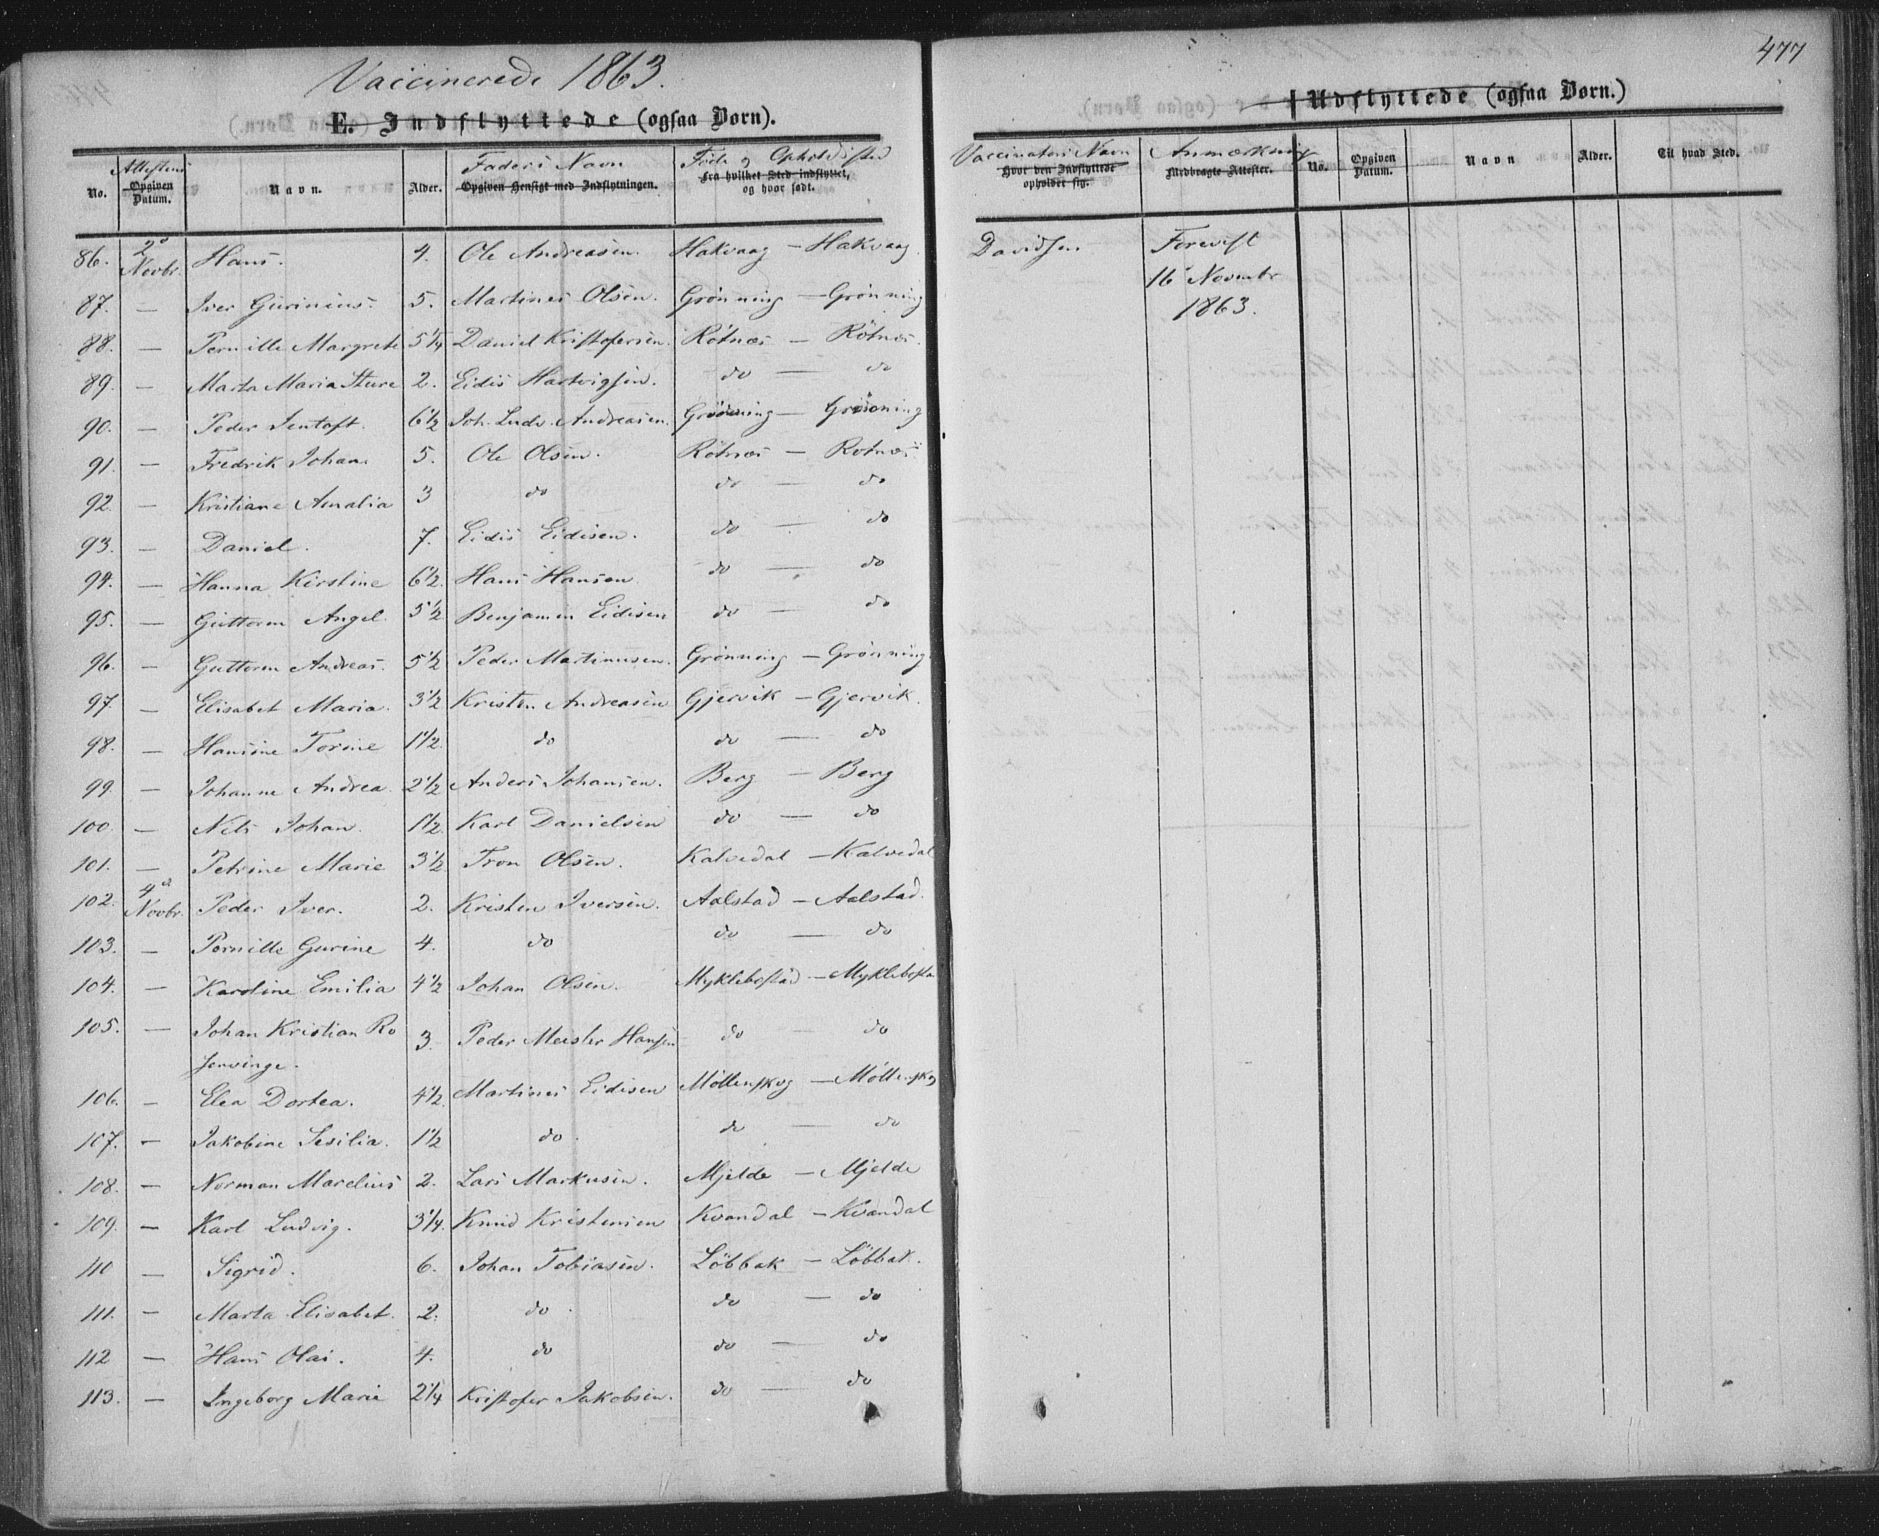 Vaccinerede 1863.
E. Indflyttede (ogsaa Børn).
No. Attestens Opgiven Datum. Navn. Alder. Faders Navn Opgiven Hensigt med Indflytningen. Føde og Opholdssted Fra hvilket Sted indflyttet, og hvor født.
86. 2d Novbr. Hans. 4. Ole Andreasen. Hakvaag — Hakvaag
87. — Iver Gurinius. 5. Martines Olsen. Grönning — Grönning
88. — Pernille Margrete 5 1/4 Daniel Kristofersen. Rötnæs — Rötnæs.
89. — Marta Maria Sture 2. Eidis Hartvigsen. do — do
90. — Peder Jentoft. 6 1/2 Joh. Ludv. Andreasen. Grönning — Grönning
91. — Fredrik Johan. 5. Ole Olsen. Rötnæs — Rötnæs
92. — Kristiane Amalia 3 do do — do
93. — Daniel. 7. Eidis Eidisen. do — do
94. — Hanna Kirstine 6 1/2. Hans Hansen do — do
95. — Guttorm Angel. 5 1/2 Benjamin Eidisen do — do
96. — Guttorm Andreas. 5 1/2 Peder Martinusen. Grönning — Grönning.
97. — Elisabet Maria. 3 1/2 Kristen Andreasen Gjervik — Gjervik.
98. — Hansine Torine 1 1/2. do do — do
99. — Johanne Andrea 2 1/2 Anders Johansen. Berg — Berg
100. — Nils Johan. 1 1/2. Karl Danielsen do — do
101. — Petrine Marie 3 1/2 Tron Olsen. Kalvedal — Kalvedal
102. 4d Novbr. Peder Iver. 2. Kristen Iversen. Aalstad — Aalstad.
103. — Pernille Gurine 4. do do — do
104. — Karoline Emilia 4 1/2 Johan Olsen. Myklebostad — Myklebosta
105. — Johan Kristian Ro 3. Peder Meisler Hansen do — do
senvinge.
106. — Elea Dortea. 4 1/2. Martines Eidisen Möllenskog — Möllenskog
107. — Jakobine Sesilia. 1 1/2 do. do — do
108. — Norman Marelius 2. Lars Markusen. Mjelde — Mjelde
109. — Karl Ludvig. 3 1/4. Knud Kristensen Kvandal — Kvandal
110 — Sigrid. 6. Johan Tobiasen. Löbbak — Löbbak.
111. — Marta Elisabet. 2. do. do — do
112 — Hans Olai. 4. do do — do
113. — Ingeborg Marie 2 1/4 Kristofer Jakobsen. do — do
477
Udflyttede (ogsaa Børn.)
Vaccinatørs Navn Hvor den Indflyttede opholder sig. Anmærkning Medbragte Attester. No. Opgiven Datum. Navn Alder. Til hvad Sted.
Davidsen Forevist
16 Novembr
1863.